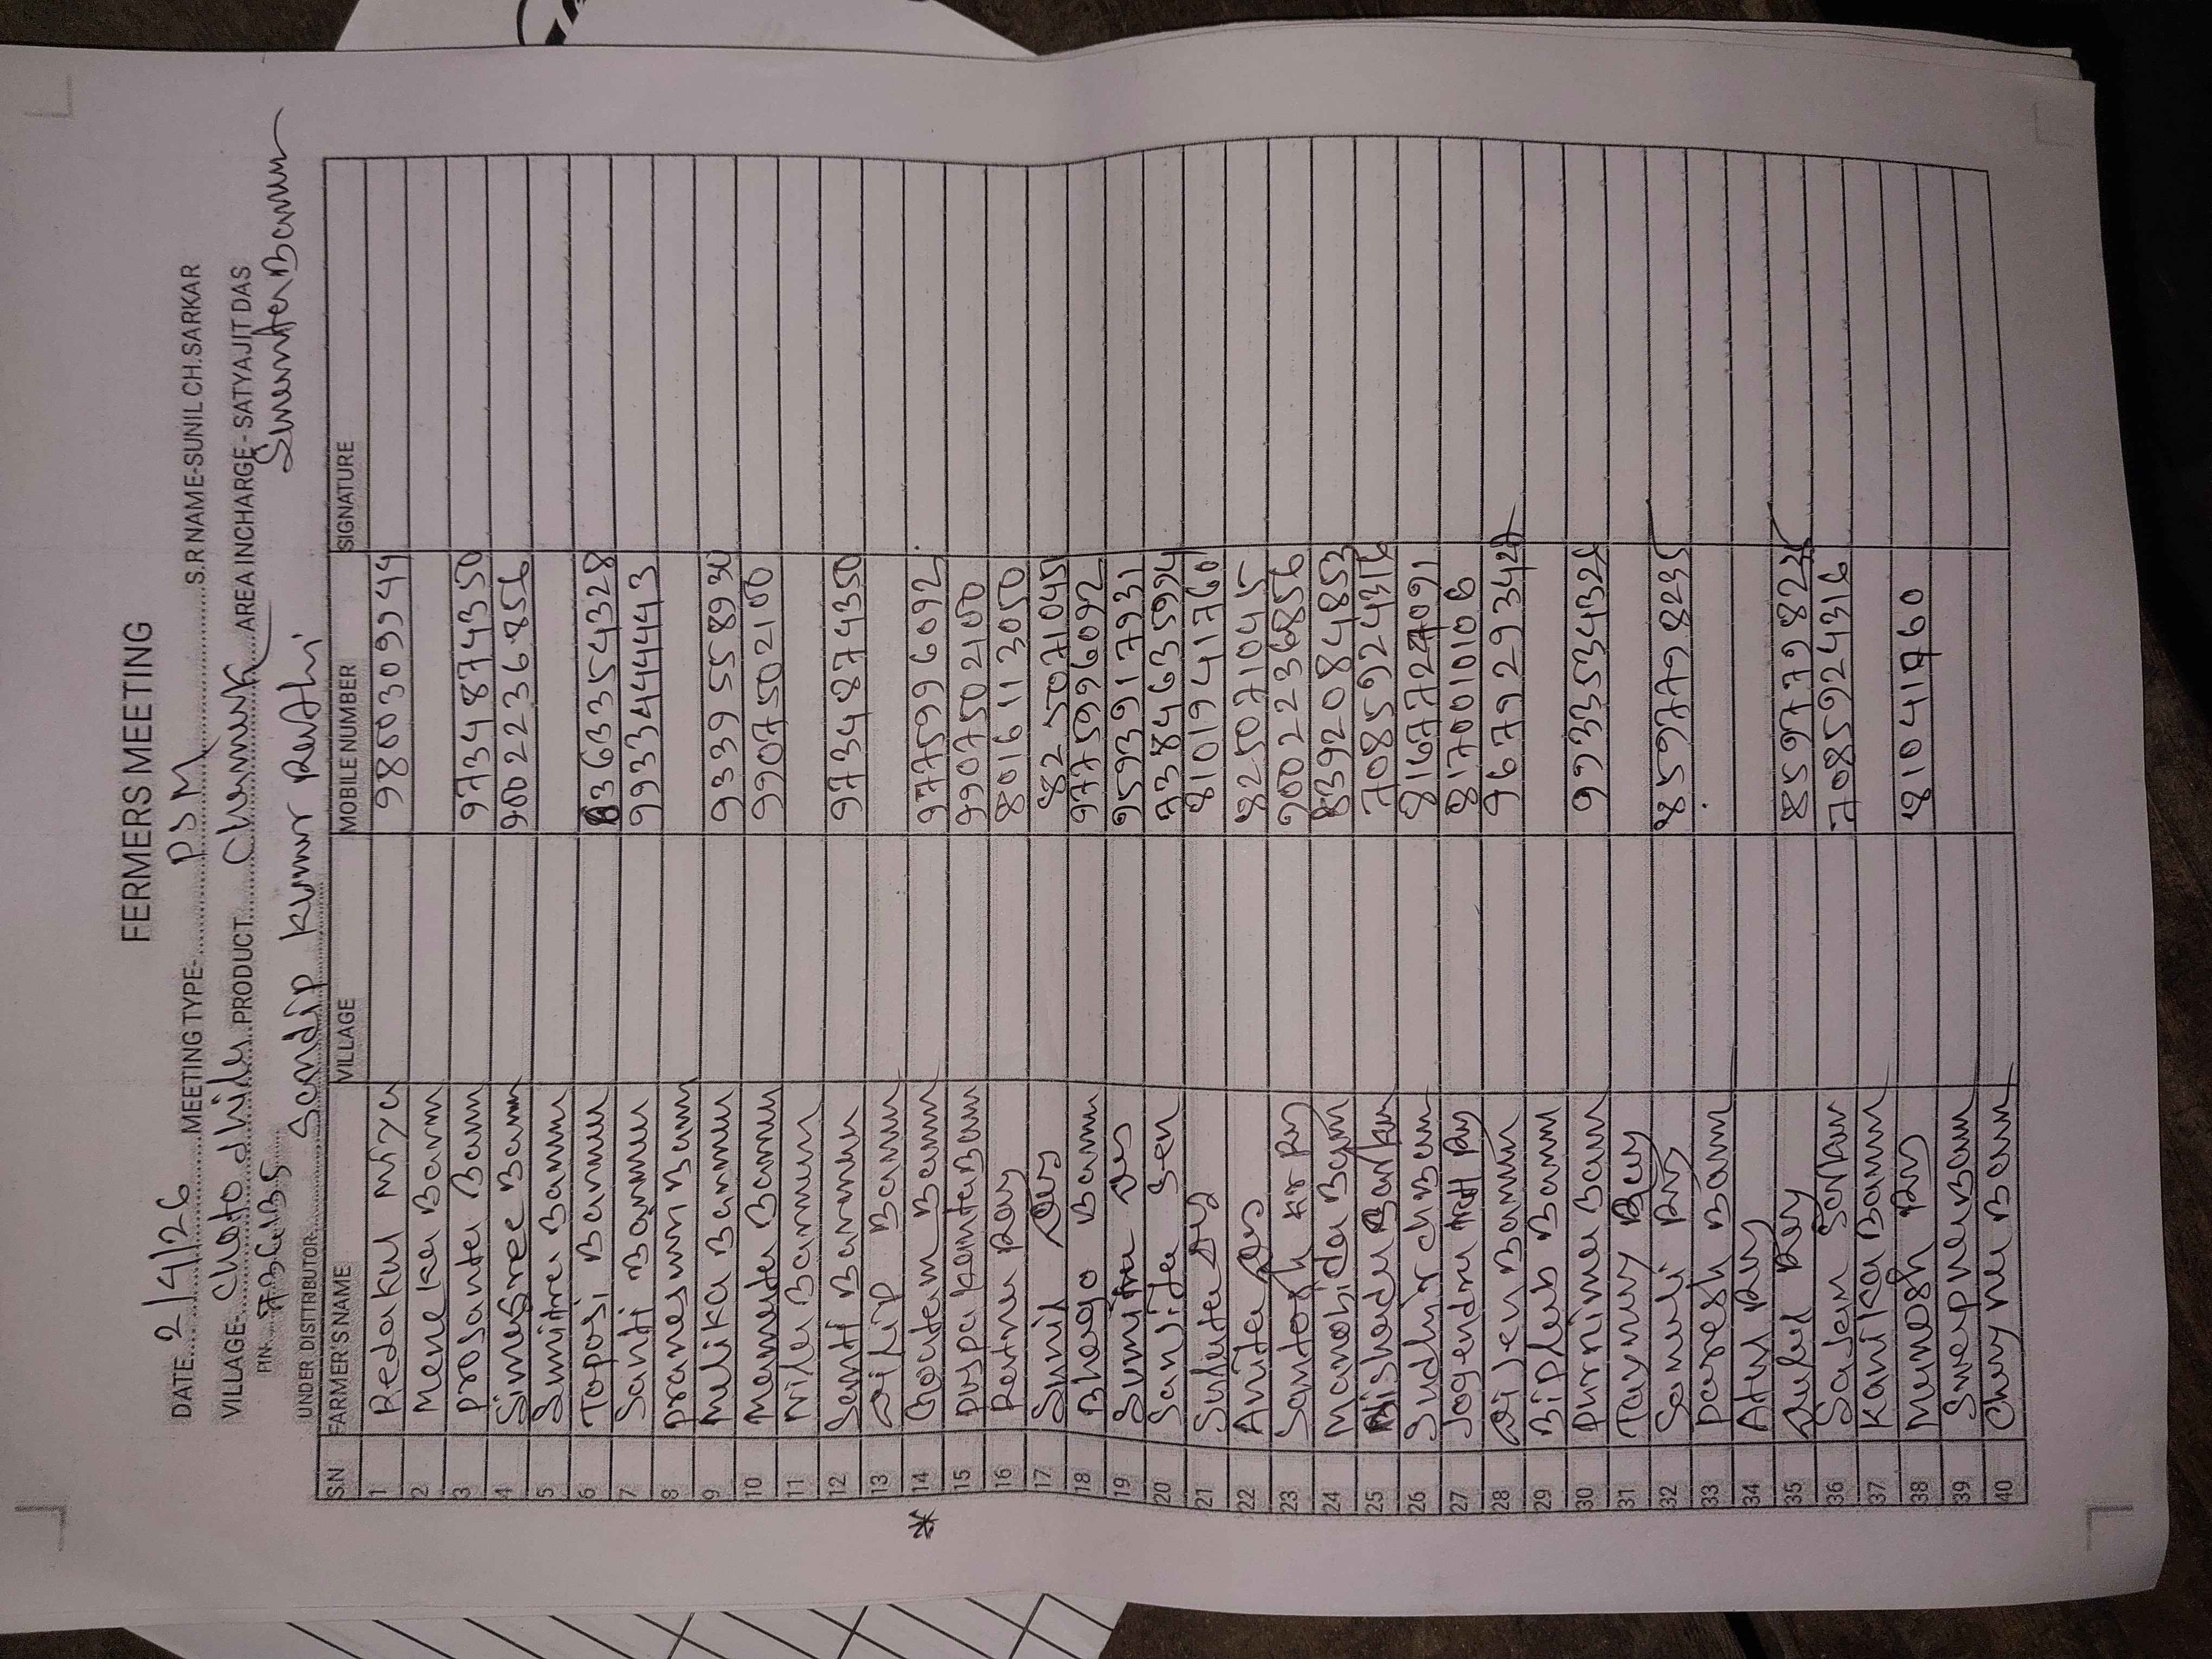 FERMERS MEETING
DATE 2/4/26 MEETING TYPE- PSM S.R NAME-SUNIL CH.SARKAR
VILLAGE- PRODUCT AREA INCHARGE- SATYAJIT DAS
PIN-
UNDER DISITRIBUTOR Sandip Kumar Rathi
S.N FARMER'S NAME VILLAGE MOBILE NUMBER SIGNATURE
1 Redakul Miya 9800309944
2 Meneka Barmn
3 Prosanta Barm 9734874350
4 Simasree Barmn 9002236856
5 Sumitra Barmn
6 Toposi Barmun 8363354328
7 Santi Barmun 9933444443
8 Pranesum Barm
9 Mulika Barmun 9339558930
10 Mamuta Barmun 9907502100
11 Nila Barmun
12 Santi Barmun 9734874350
13 Dilip Barmn
14 Goutam Barmn 9775996092
15 Puspa Kanta Barm 9907502100
16 Ratna Ray 8016113050
17 Sunil Das 8250071045
18 Bhago Barmn 9775996092
19 Sumitra Das 9593917931
20 Sanjida Sen 7384635994
21 Sulata 8101941760
22 Anita Das 8250710045
23 Santosh kr Ry 9002236856
24 Manobida Barm 8392084853
25 Sarkar 7085924316
26 Sudhir ch Barm
27 Jogendra Ry 8170010106
28 Dijen Barmun
29 Biplub Barmn
30 Purnima Barm 9933534326
31 Tanmuy Ray
32 Samuli Ry 8597798235
33 Paresh Barmn
34 Atul Ry
35 Dulul Ray
36 Sajan Sarkar 7085924316
37 Kanika Barmn
38 Munesh Ry 8104141760
39 Swapna Barm
40 Barm